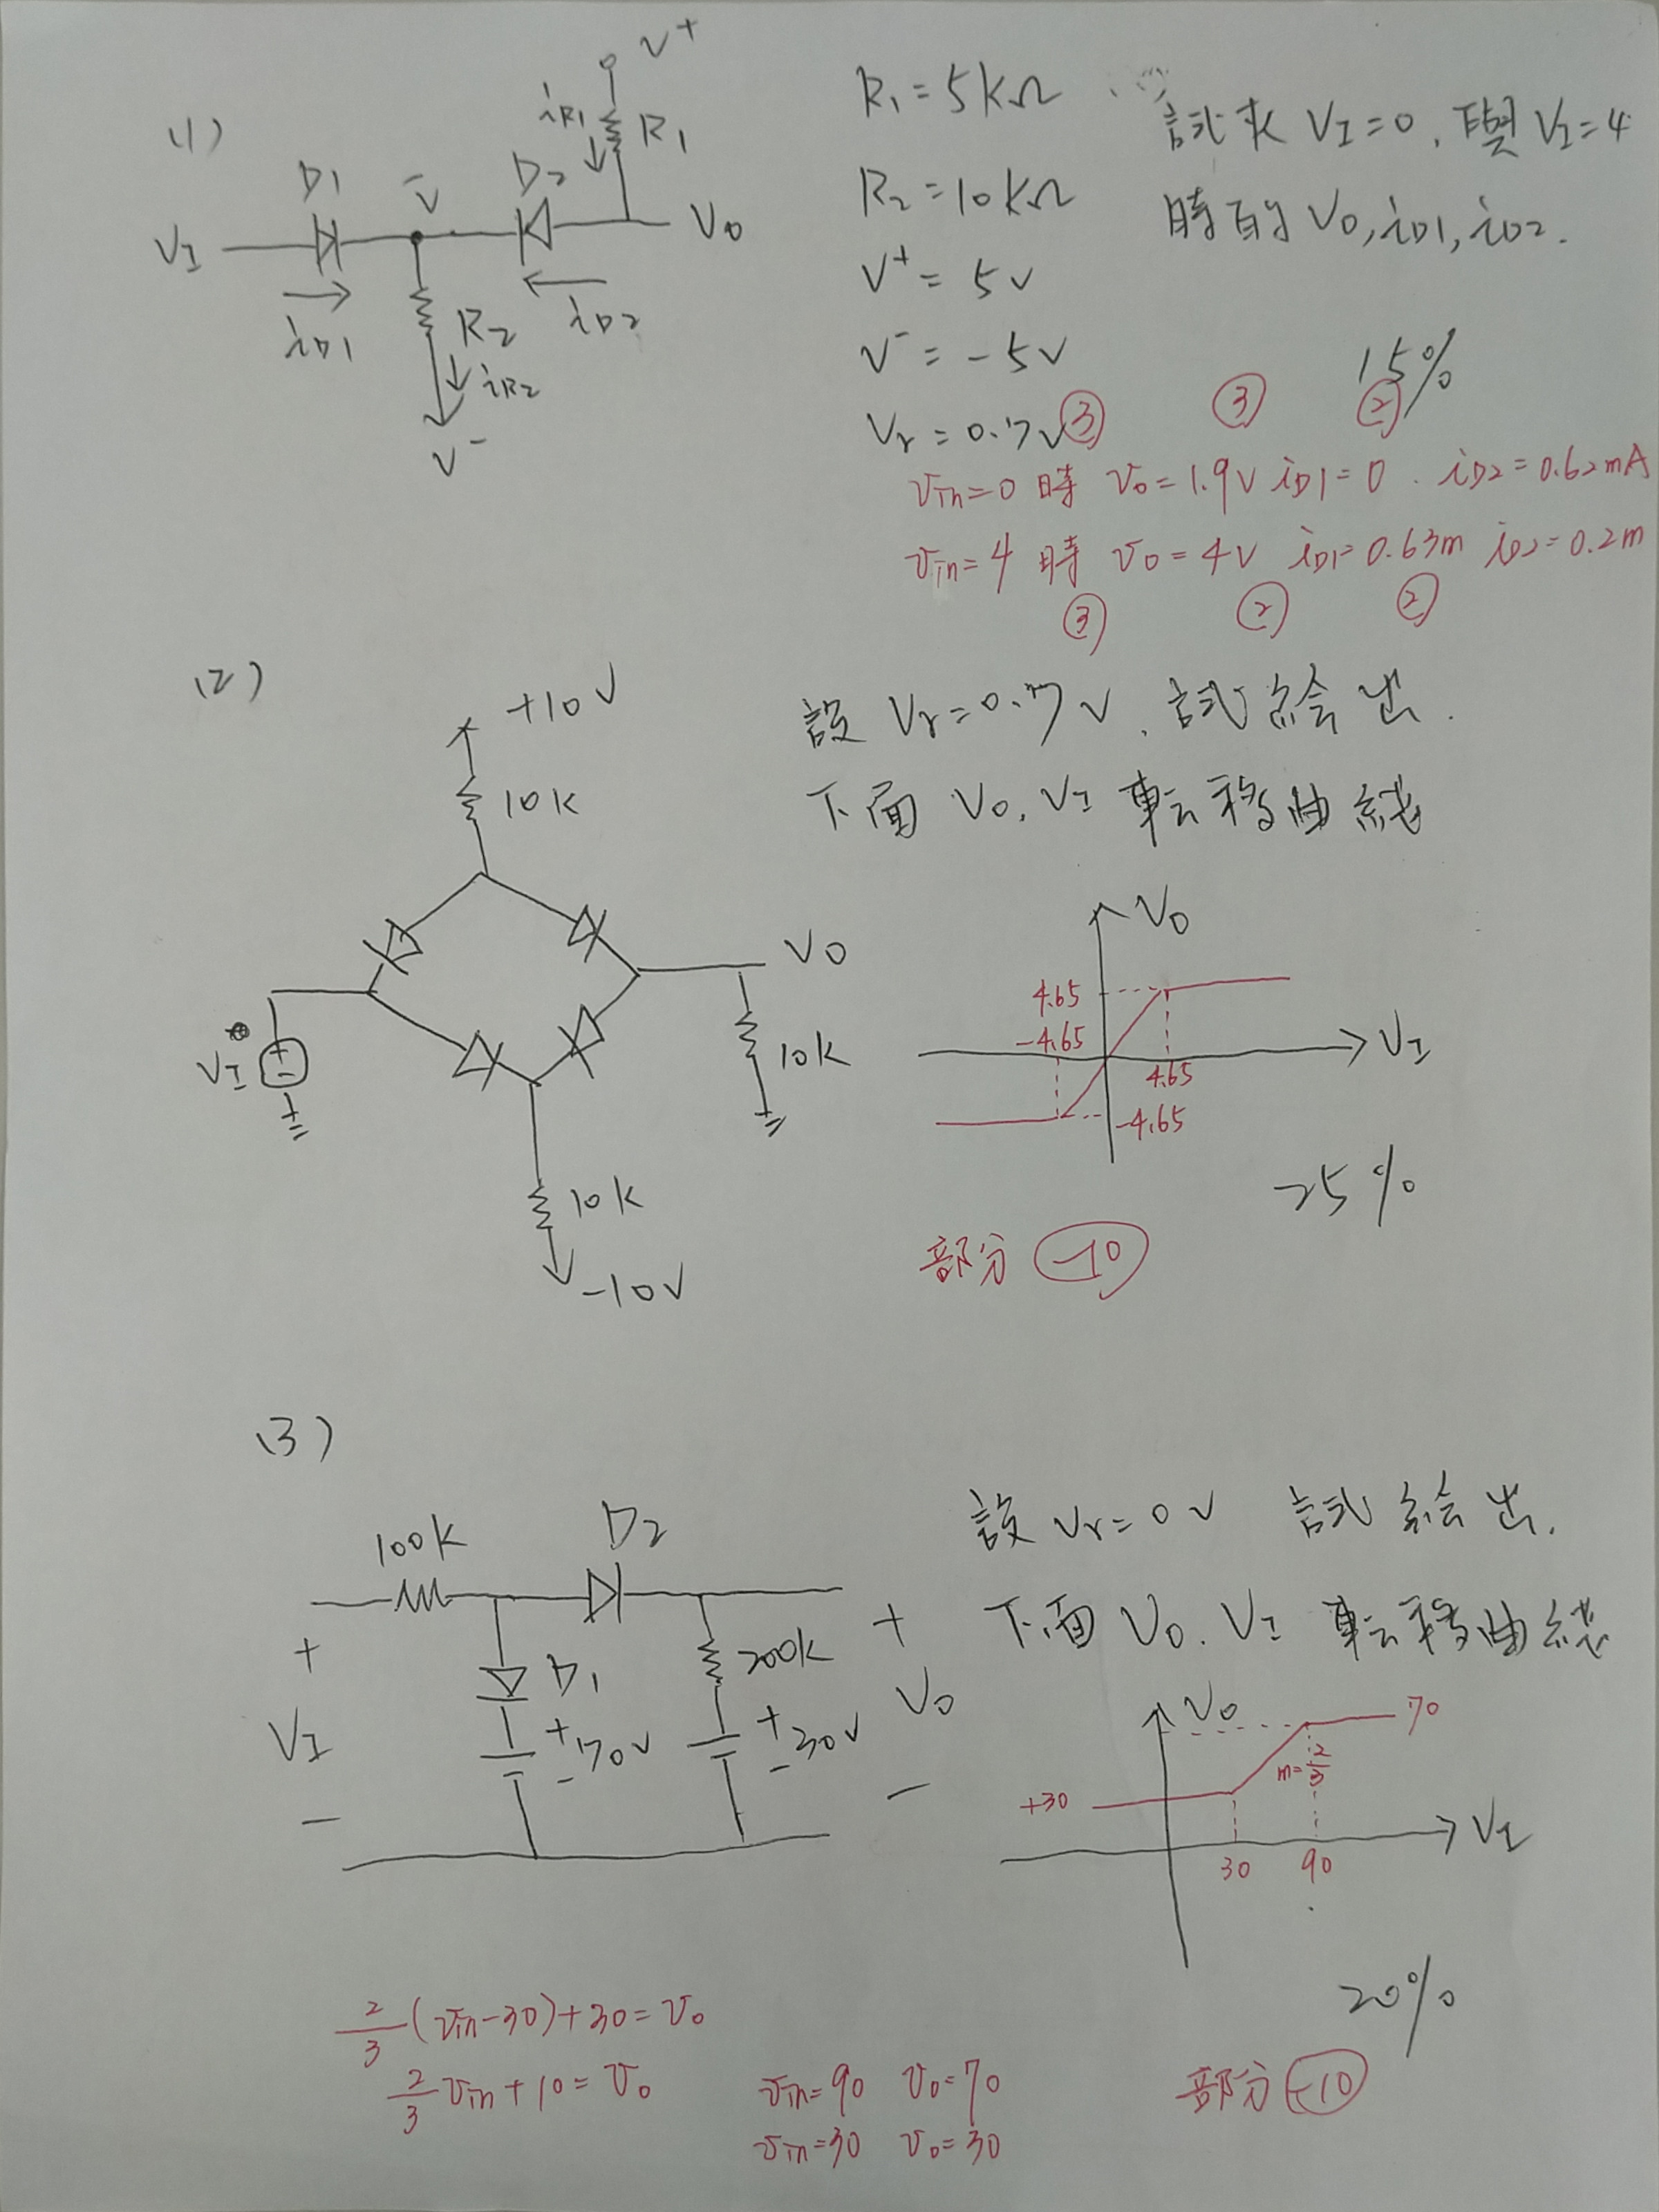 (1)
V+
iR1
R1
D1
V
D2
VI
VO
iD1
R2
iR2
iD2
V-
R1=5KΩ
R2=10KΩ
V+=5V
V-=-5V
Vr=0.7V
試求 VI=0, 與 VI=4
時的 VO, iD1, iD2.
15%
③ ③ ②
vin=0 時 vo=1.9V iD1=0. iD2=0.62mA
vin=4 時 vo=4V iD1=0.63m iD2=0.2m
③ ② ②
(2)
+10V
10K
VO
10K
VI
+
-
10K
-10V
設 Vr=0.7V, 試絵出.
下面 VO, VI 転移曲綫
VO
4.65
-4.65
VI
4.65
-4.65
25%
部分 -10
(3)
100K
D2
+
VI
-
D1
+
70V
-
200K
+
30V
-
+
VO
-
設 Vr=0V 試絵出.
下面 VO, VI 転移曲綫
VO
70
m=2/3
+30
VI
30
90
20%
部分 -10
2/3(vin-30)+30=vo
2/3vin+10=vo
vin=90 vo=70
vin=30 vo=30